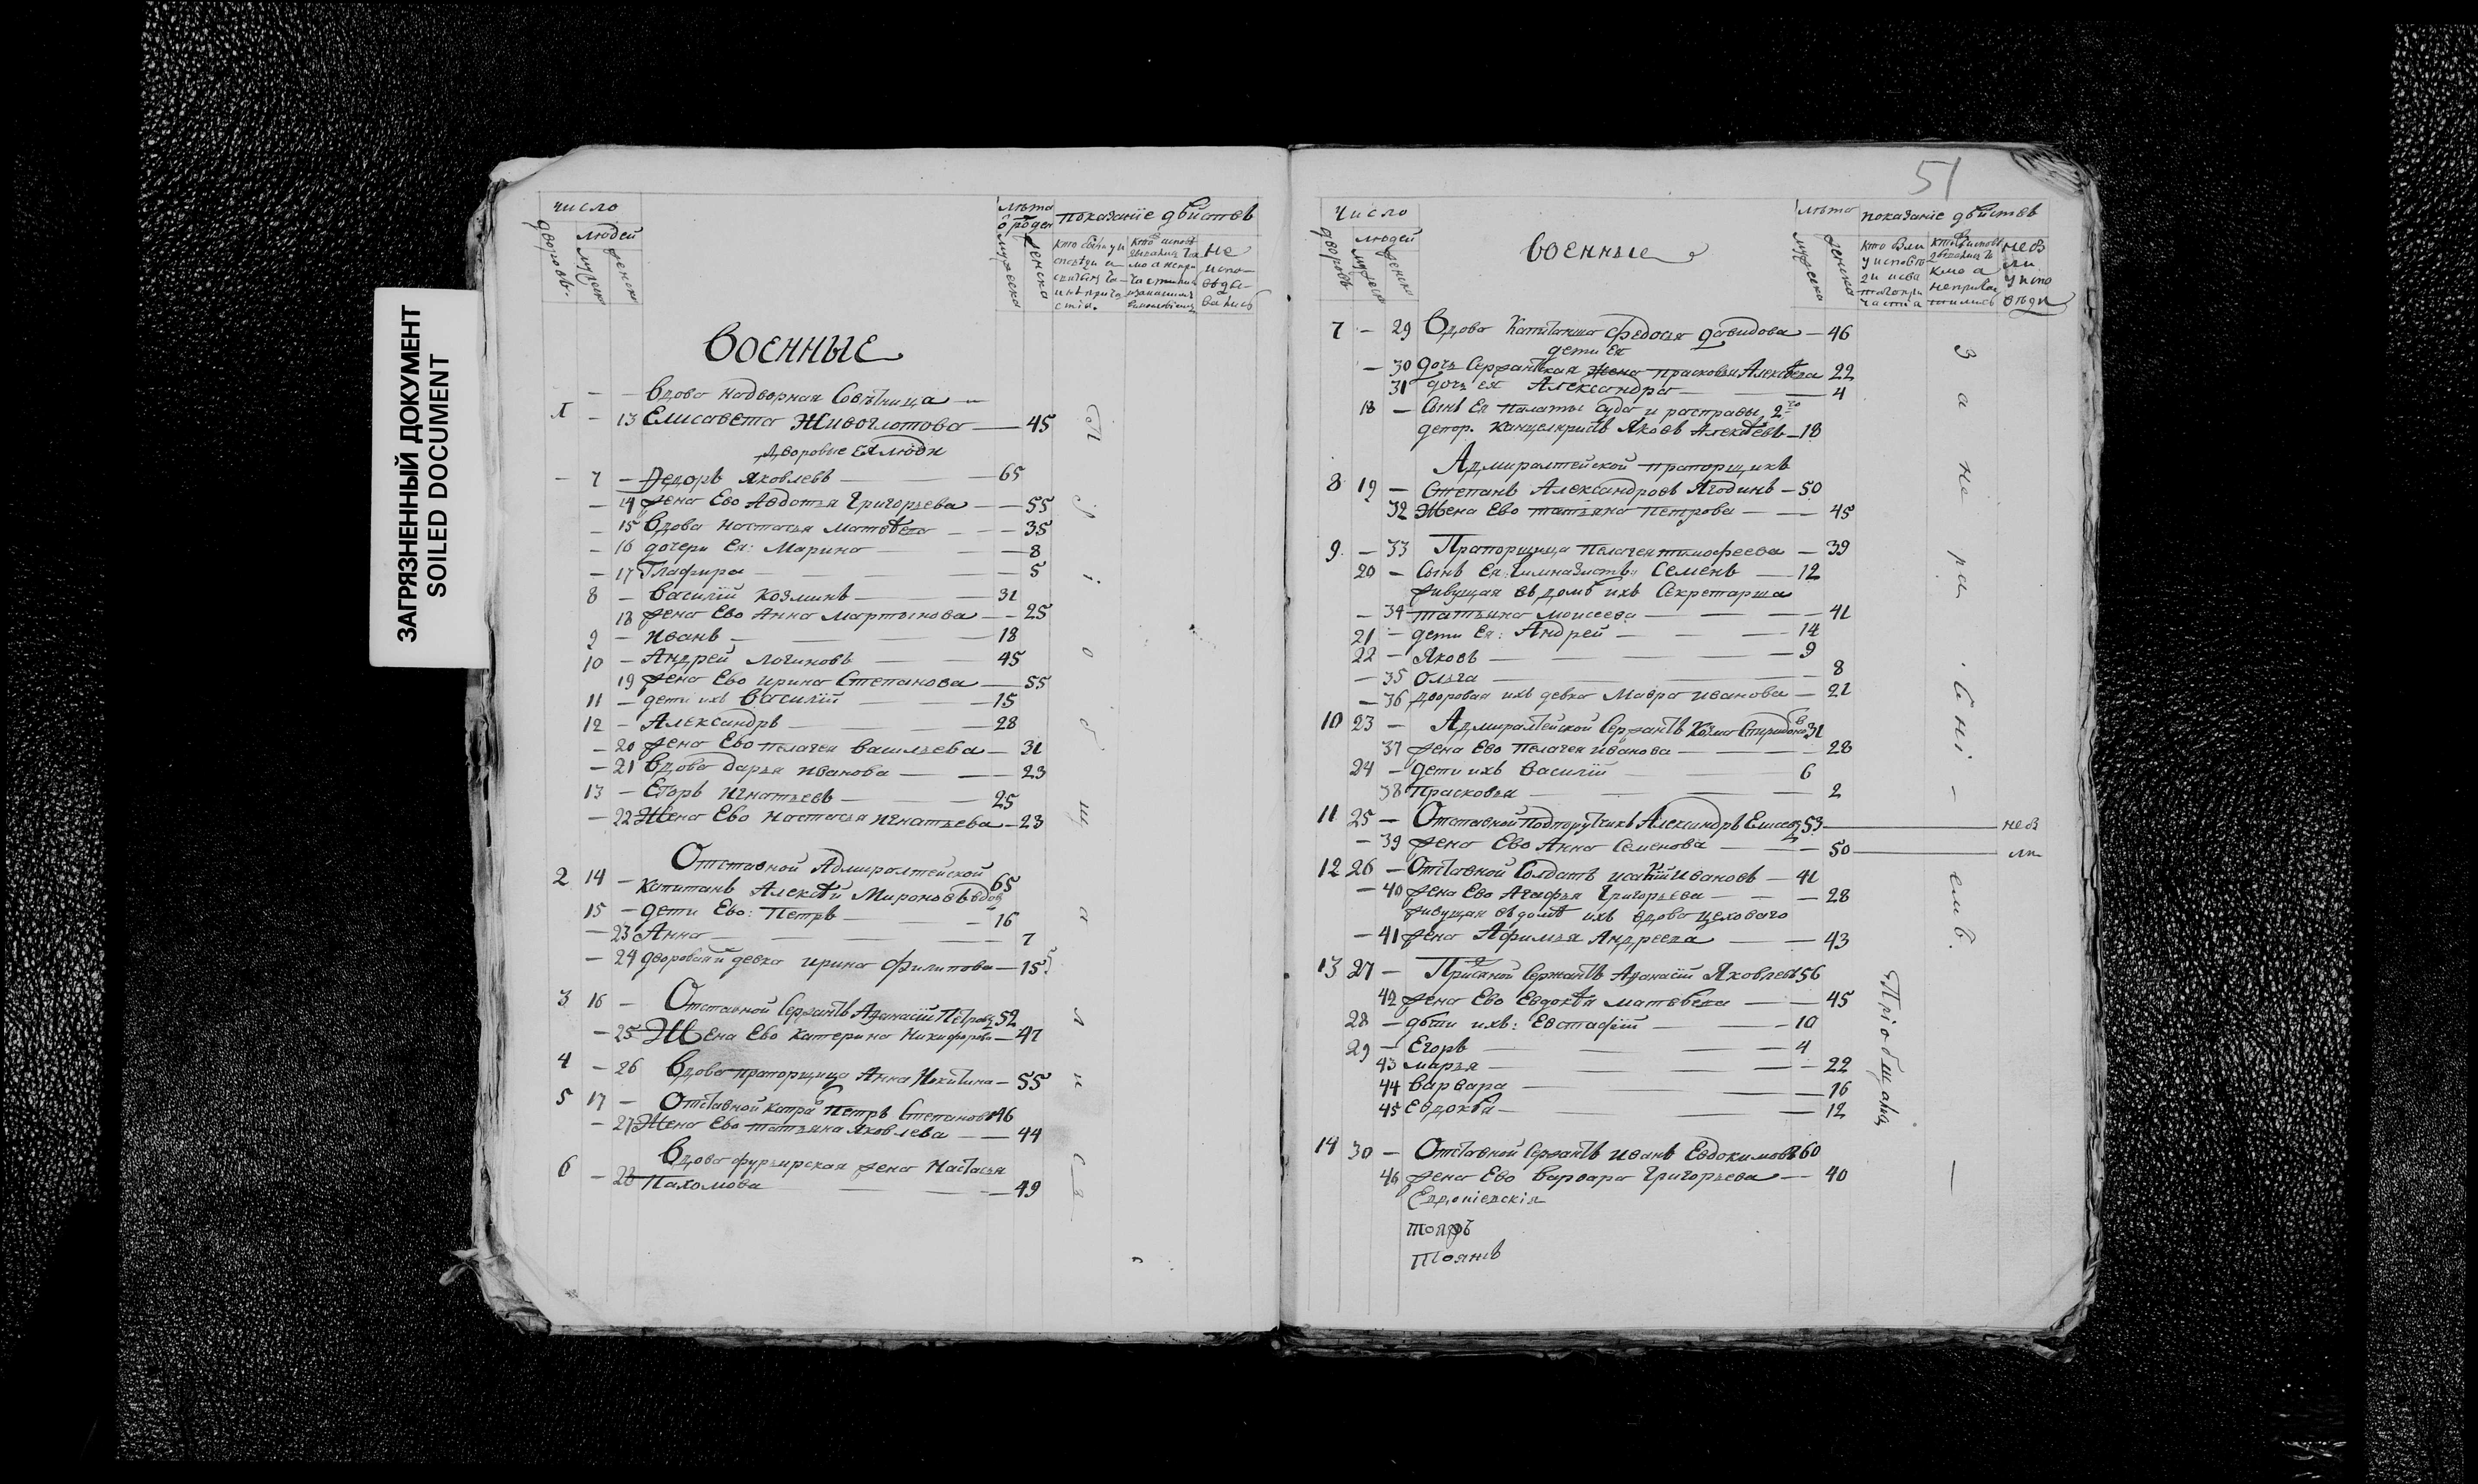 ЗАГРЯЗНЕННЫЙ ДОКУМЕНТ
SOILED DOCUMENT
число
дворовъ.
людей
мужеска
женска
лѣта
ѿ рожден
мужеска
женска
показанїе дѣйствъ
не
испо-
вѣды-
вались
Военные
— — Вдова надворная Совѣтница —
1 — 13 Елисавета Живоглотова — 45
Дворовые Ея люди
— 7 — Ѳедоръ Яковлевъ — 65
— 14 жена Ево Авдотья Григорьева — 55
— 15 Вдова Настасья Матвѣева — 35
— 16 дочери Ея: Марина — 8
— 17 Глафира — 5
8 — Василїй Козминъ — 31
18 жена Ево Анна Мартынова — 25
9 — Иванъ — 18
10 — Андрей Логиновъ — 45
19 жена Ево Ирина Степанова — 55
11 — дети ихъ Василїй — 15
12 — Александръ — 28
— 20 жена Ево Пелагея Васильева — 31
— 21 Вдова Дарья Иванова — 23
13 — Егоръ Игнатьевъ — 25
— 22 Жена Ево Настасья Игнатьева — 23
Отставной Адмиралтейской
2 14 — Капитанъ Алексѣй Мироновъ вдов 65
15 — дети Ево: Петръ — 16
— 23 Анна — 7
— 24 дворовая девка Ирина Филипова — 15
3 16 — Отставной Сержантъ Аѳанасїй Петровъ 52
— 25 Жена Ево Катерина Никифорова — 47
4 — 26 Вдова прапорщица Анна Никитина — 55
5 17 — Отставной капра Петръ Степановъ 46
— 27 Жена Ево Татьяна Яковлева — 44
Вдова фурьирская жена Настасья
6 — 28 Пахомова — 49
Прїобщалися
51
Число
дворовъ
людей
мужеска
женска
военные
лѣта
мужеска
женска
показанїе дѣйствъ
не б
ли
у испо
вѣди
7 — 29 Вдова Капитанша Федосья Давидова — 46
дети Ея
— 30 дочь Сержантская жена Прасковья Алексѣева 22
31 дочь ея Александра — 4
18 — Сынъ Ея палаты суда и расправы 2го
депор. канцеляристъ Яковъ Алексѣевъ — 18
Адмиралтейской прапорщикъ
8 19 — Степанъ Александровъ Ягодинъ — 50
32 Жена Ево Татьяна Петрова — 45
9. — 33 Прапорщица Пелагея Тимофеева — 39
20 — Сынъ Ея: Гимназистъ: Семенъ — 12
живущая въ домѣ ихъ Секретарша
— 34 Татьяна Моисеева — 41
21 — дети Ея: Андрей — 14
22 — Яковъ — 9
— 35 Ольга — 8
— 36 Дворовая ихъ девка Мавра Иванова — 21
10 23 — Адмиралтейской Сержантъ Козма Спиридоновъ 31
37 жена Ево Пелагея Иванова — 28
24 — дети ихъ Василїй 6
38 Прасковья — 2
11 25 — Отставной Подпорутчикъ Александръ Елисеевъ 53 — не б
— 39 жена Ево Анна Семенова — 50 — ли
12 26 — Отставной Солдатъ Исай Ивановъ — 41
— 40 жена Ево Агафья Григорьева — 28
живущая въ домѣ ихъ вдова цеховаго
— 41 жена Афимья Андреева — 43
13 27 — Присяжной Сержантъ Аѳанасїй Яковлевъ 56
42 жена Ево Евдокѣя Матвѣева — 45
28 — дѣти ихъ: Евстафїй — 10
29 — Егоръ — 4
43 Марья — 22
44 Варвара — 16
45 Евдокѣя — 12
14 30 — Отставной Сержантъ Иванъ Евдокимовъ 60
46 жена Ево Варвара Григорьева — 40
тоянъ
За нера.
Прїобщалися